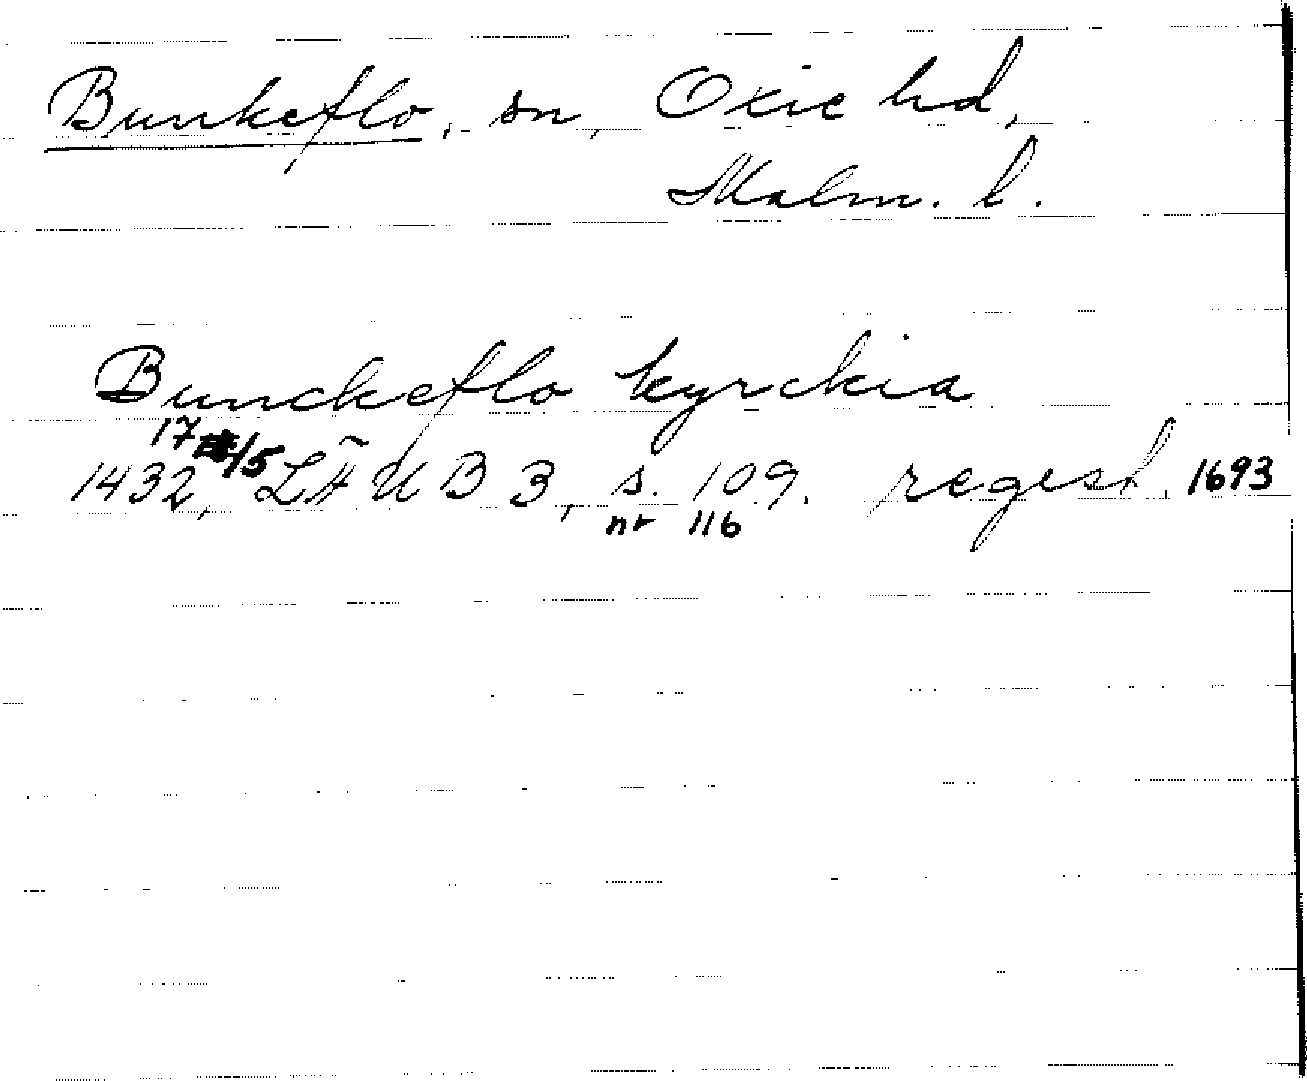 Bunkeflo, sn, Oxie hd,
Malm. l.
Bunckeflo kyrckia
17/5
1432, LÄUB 3, s. 109. regest. 1693
nr 116